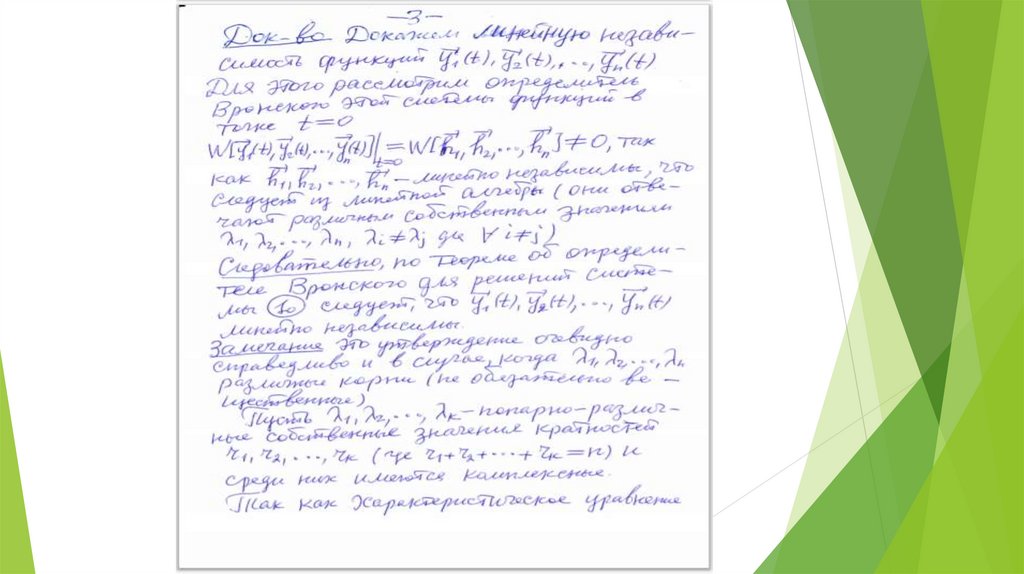 —3—
Док-во Докажем линейную незави-
симость функций y⃗1(t), y⃗2(t),..., y⃗n(t)
Для этого рассмотрим определитель
Вронского этой системы функций в
точке t=0
W[y⃗1(t), y⃗2(t),..., y⃗n(t)]|t=0 = W[h⃗1, h⃗2,..., h⃗n] ≠ 0, так
как h⃗1, h⃗2, ..., h⃗n – линейно независимы, что
следует из линейной алгебры (они отве-
чают различным собственным значениям
λ1, λ2,..., λn, λi≠λj где ∀ i≠j)
Следовательно, по теореме об определи-
теле Вронского для решений систе-
мы (10) следует, что y⃗1(t), y⃗2(t), ..., y⃗n(t)
линейно независимы.
Замечание это утверждение очевидно
справедливо и в случае, когда λ1, λ2,..., λn
различные корни (не обязательно ве-
щественные)
Пусть λ1, λ2, ..., λк – попарно-различ-
ные собственные значения кратностей
r1, r2, ..., rк (где r1+r2+...+rк=n) и
среди них имеются комплексные.
Так как характеристическое уравнение